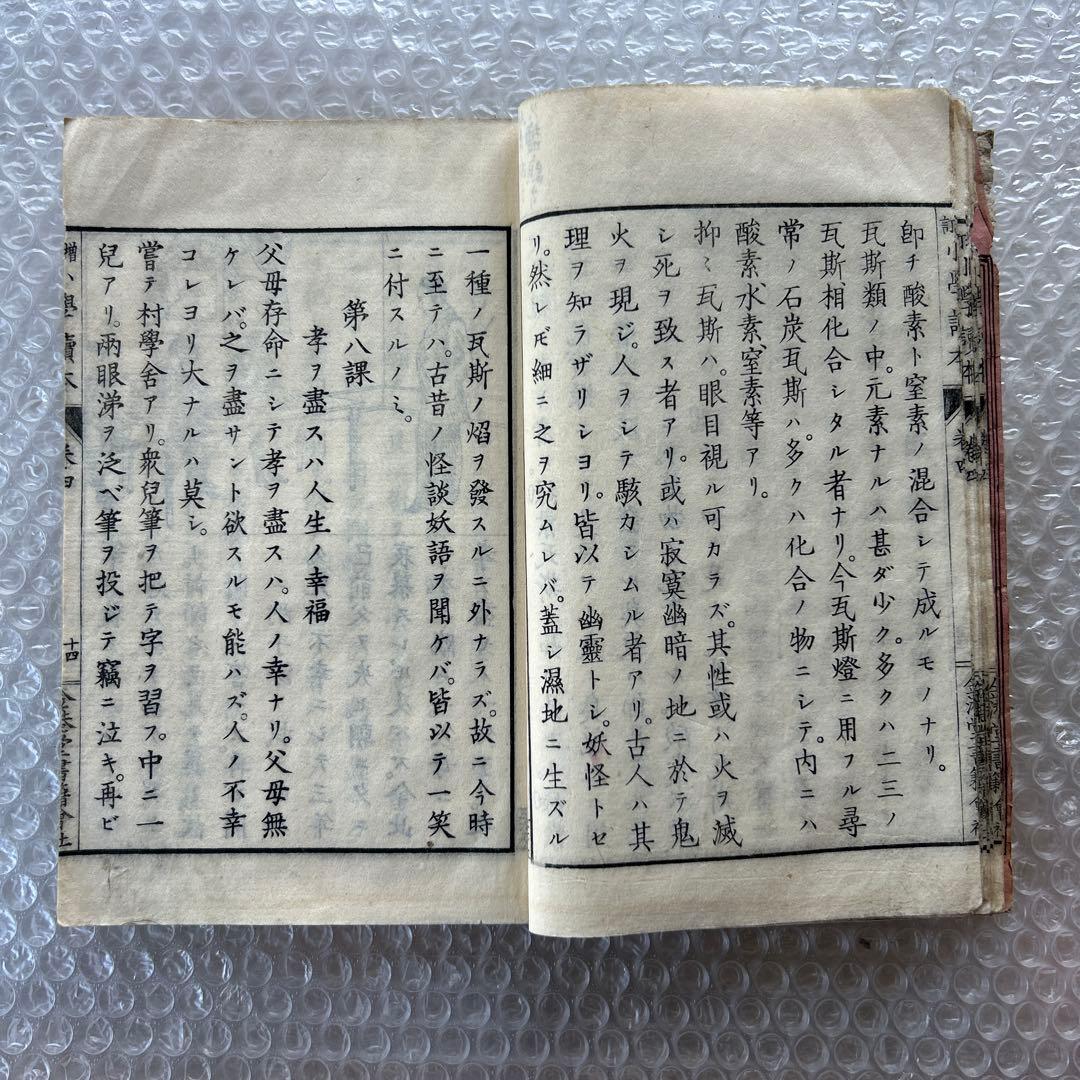 卽チ酸素ト窒素ノ混合シテ成ルモノナリ。
瓦斯類ノ中。元素ナルハ甚ダ少ク。多クハ二三ノ
瓦斯。相化合シタル者ナリ。今瓦斯燈ニ用フル尋
常ノ石炭瓦斯ハ。多クハ化合ノ物ニシテ。内ニハ
酸素、水素、窒素等アリ。
抑〻瓦斯ハ。眼目視ル可カラズ。其性或ハ火ヲ滅
シ死ヲ致ス者アリ。或ハ寂寞幽暗ノ地ニ於テ鬼
火ヲ現ジ。人ヲシテ駭カシムル者アリ。古人ハ其
理ヲ知ラザリシヨリ。皆以テ幽靈トシ。妖怪トセ
リ。然レ𪜈細ニ之ヲ究ムレバ。蓋シ濕地ニ生ズル
一種ノ瓦斯ノ焰ヲ發スルニ外ナラズ。故ニ今時
ニ至テハ。古昔ノ怪談妖語ヲ聞ケバ。皆以テ一笑
ニ付スルノミ。
第八課
孝ヲ盡スハ人生ノ幸福
父母存命ニシテ孝ヲ盡スハ。人ノ幸ナリ。父母無
ケレバ。之ヲ盡サント欲スルモ能ハズ。人ノ不幸
コレヨリ大ナルハ莫シ。
嘗テ村學舍アリ。衆兒筆ヲ把テ字ヲ習フ。中ニ一
兒アリ。兩眼涕ヲ泛べ筆ヲ投ジテ竊ニ泣キ。再ビ
小學讀本
卷四
十四